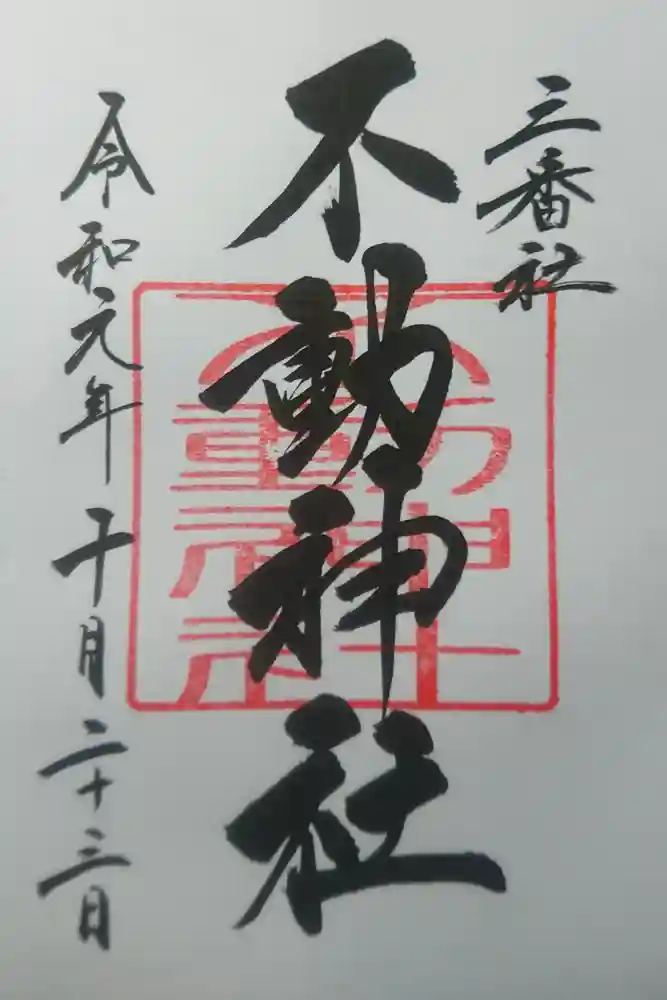 三番社
不動神社
不動神社
令和元年十月二十三日